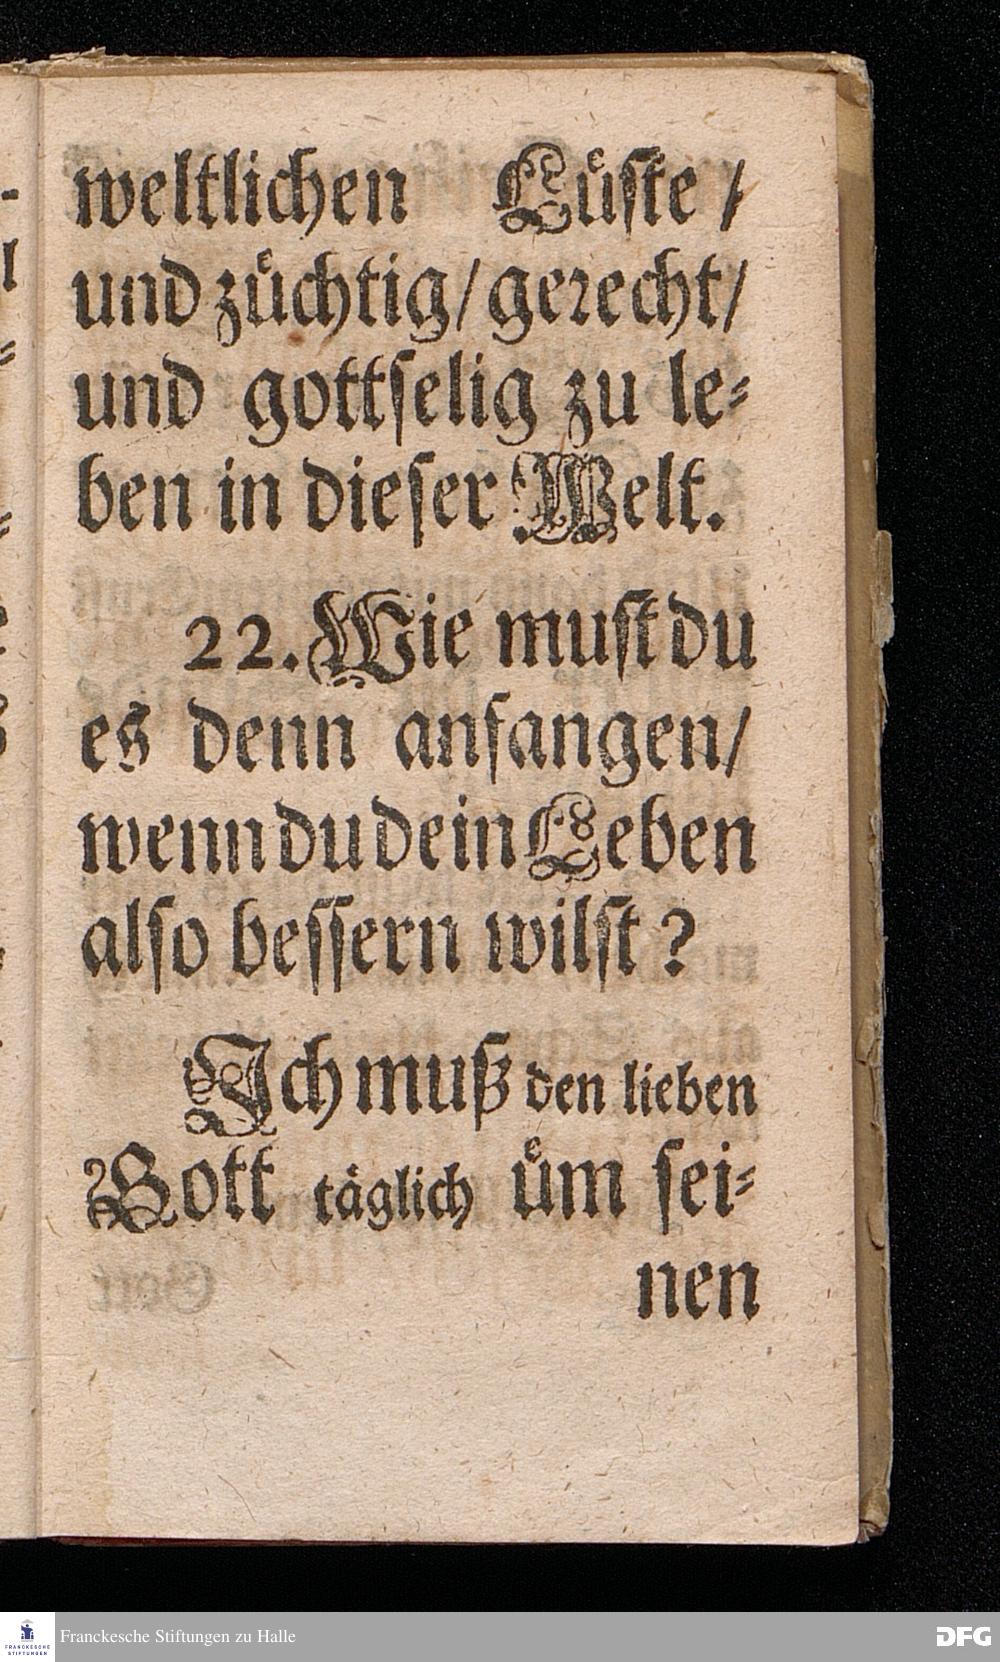 weltlichen Luͤſte /
und zuͤchtig / gerecht /
und gottſelig zu le⸗
ben in dieſer Welt.
22. Wie muſt du
es denn anfangen /
wenn du dein Leben
alſo beſſern wilſt ?
Ich muß den lieben
Gott taͤglich uͤm ſei⸗
nen
FRANCKESCHE
STIFTUNGEN
Franckesche Stiftungen zu Halle
DFG